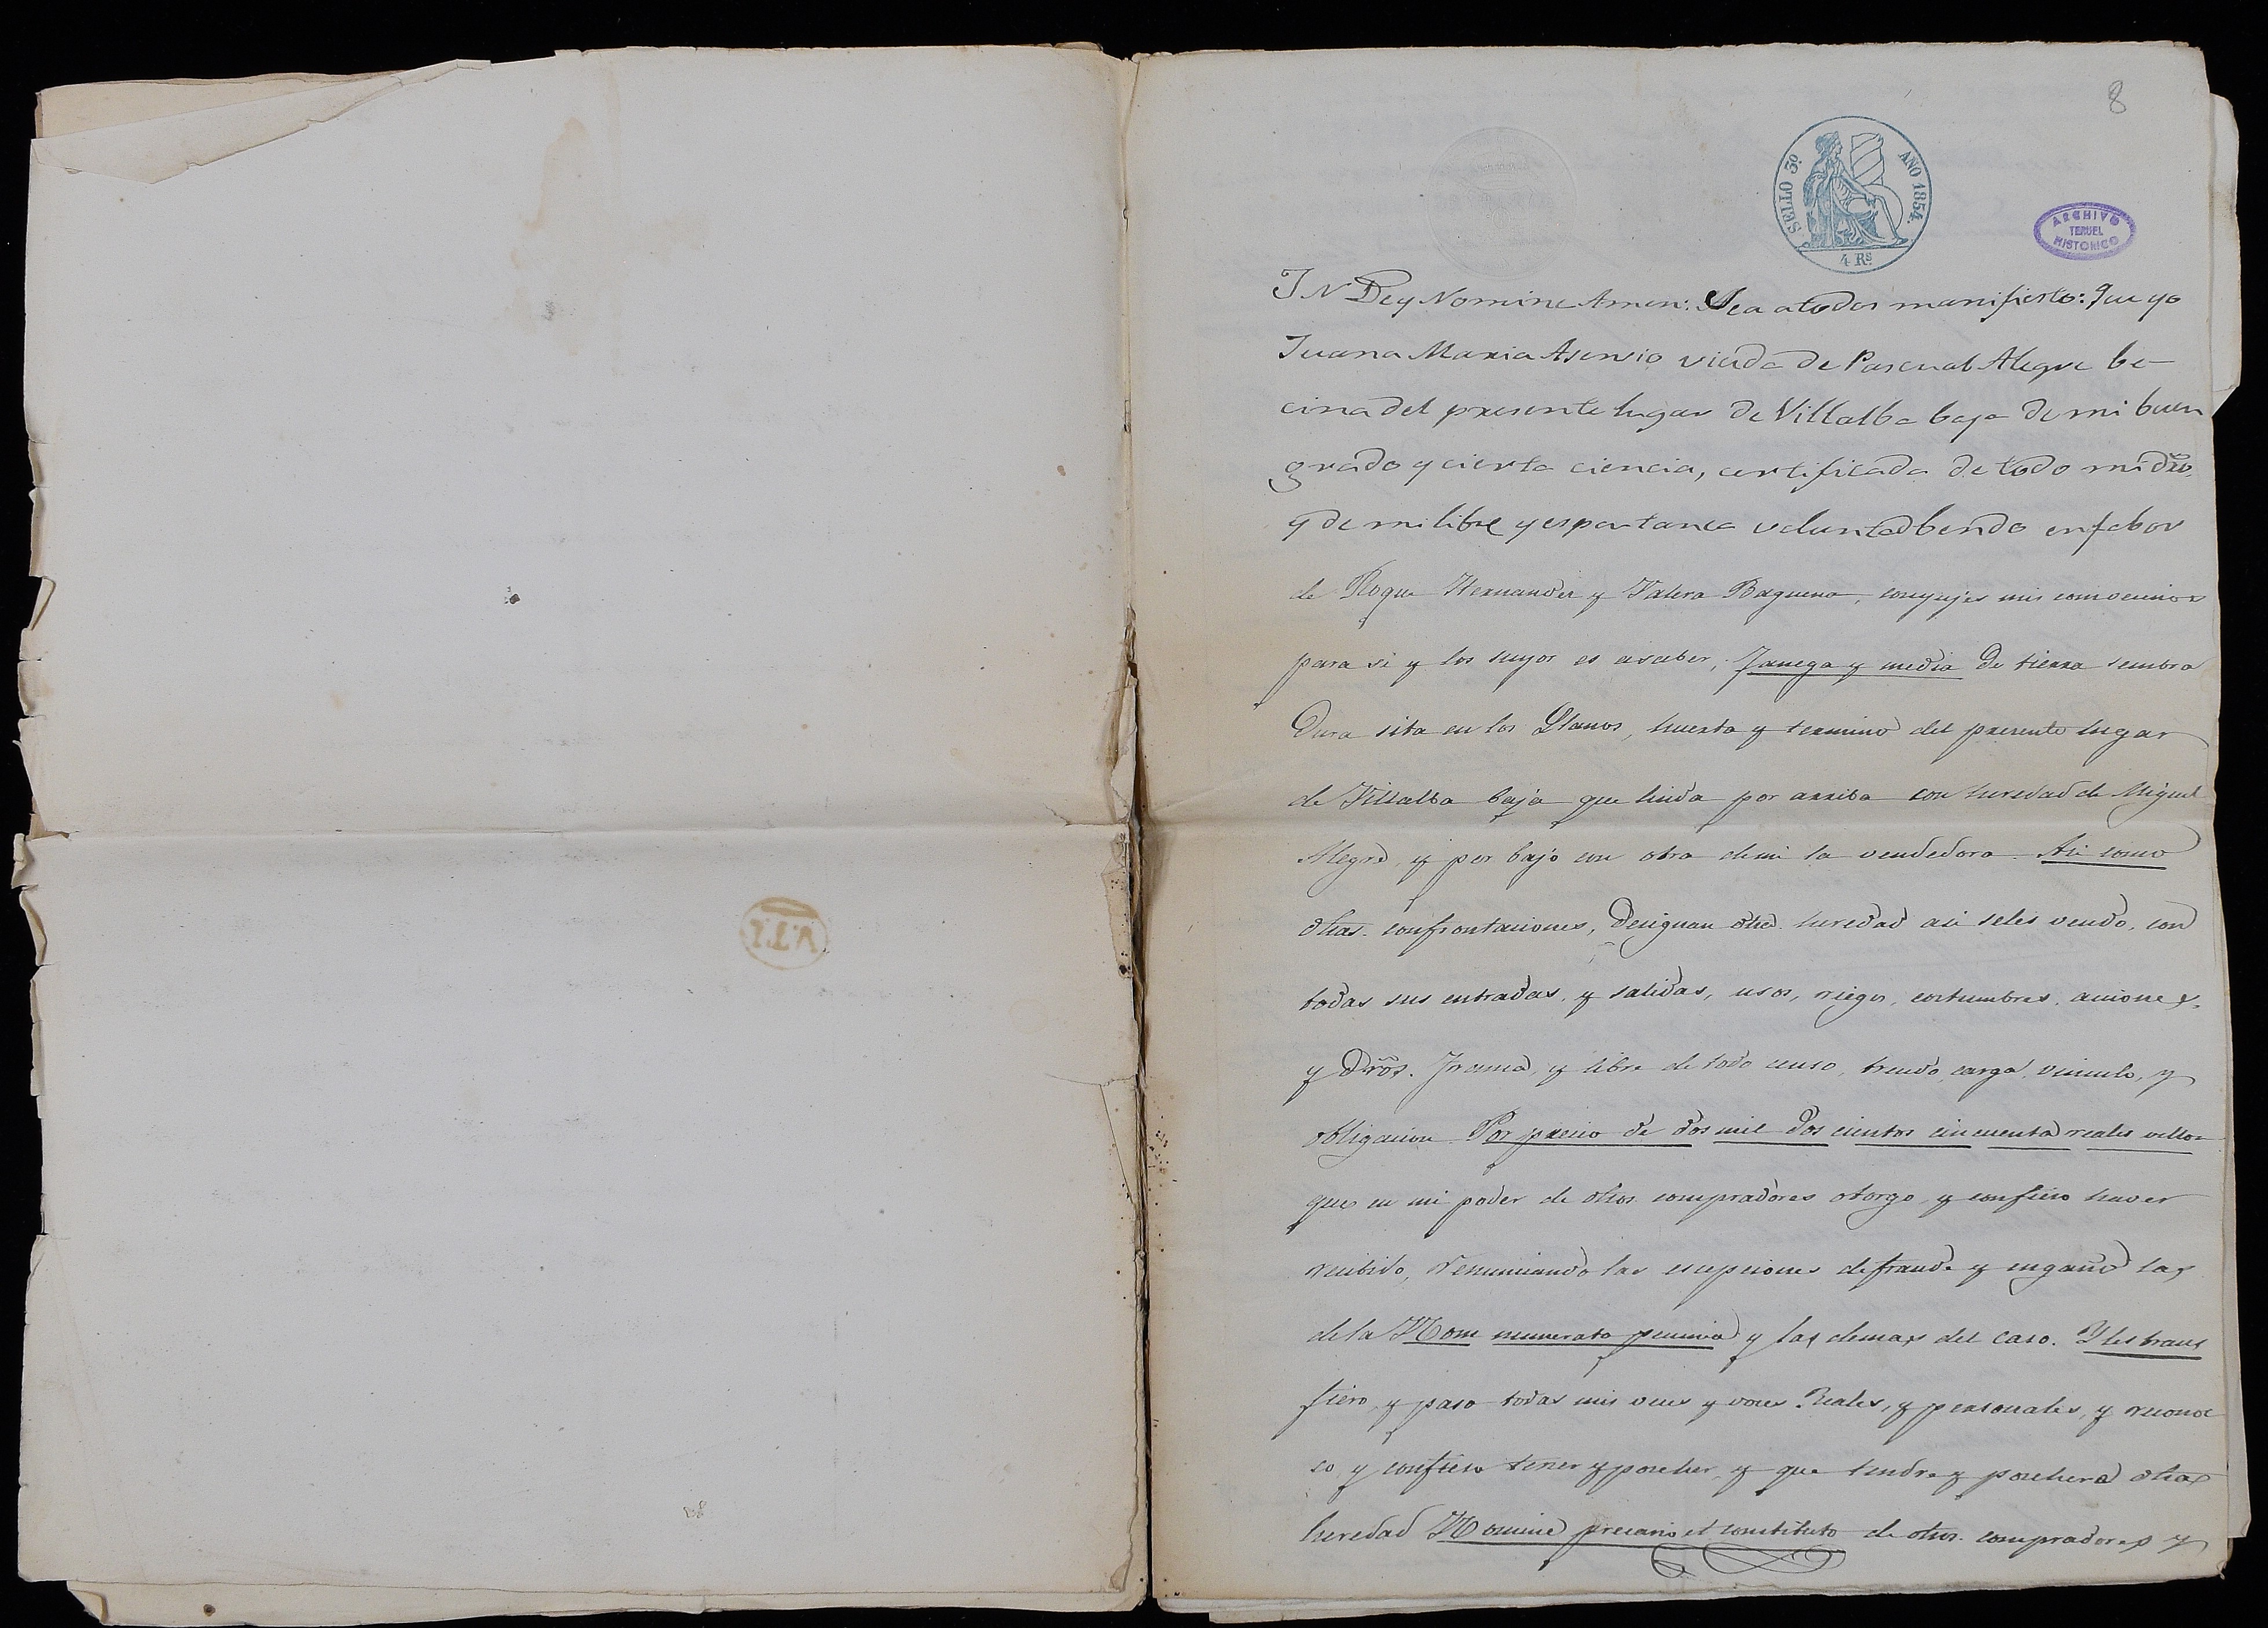 8
SELLO 3º AÑO 1854.
4 Rs.
ARCHIVO
TERUEL
HISTORICO
IN Dey Nomine Amen: Sea a todos manifiesto: que yo
Juana Maria Asensio viuda de Pascual Alegre be-
cina del presente lugar de Villalba baja de mi buen
grado y cierta ciencia, certificada de todo mi dro.
y de mi libre y espontanea voluntad bendo en fabor
de Roque Hernandez y Valera Baguena, conyujes mis convecinos
para si y los suyos es a saber, fanega y media de tierra sembra
dura sita en los Llanos, huerta y termino del presente lugar
de Villalba baja que linda por arriba con heredad de Miguel
Alegre, y por bajo con otra de mi la vendedora. Asi como
dhas. confrontaciones, designan dha. heredad asi seles vendo, con
todas sus entradas, y salidas, usos, riegos, costumbres, acciones,
y dros. Franca, y libre de todo censo, treudo, carga, vinculo, y
obligacion. Por precio de dos mil dos cientos cincuenta reales vellon
que en mi poder de dhos. compradores otorgo, y confieso haver
recibido, renunciando las escepciones de fraude y engaño las
de la Non numerata pecunia y las demas del caso. Y les trans
fiero, y paso todas mis veces y voces Reales, y personales, y reconoz
co, y confieso tener y poseher, y que tendre y poseheré dha
heredad Nomine precario et constituto de dhos. compradores y